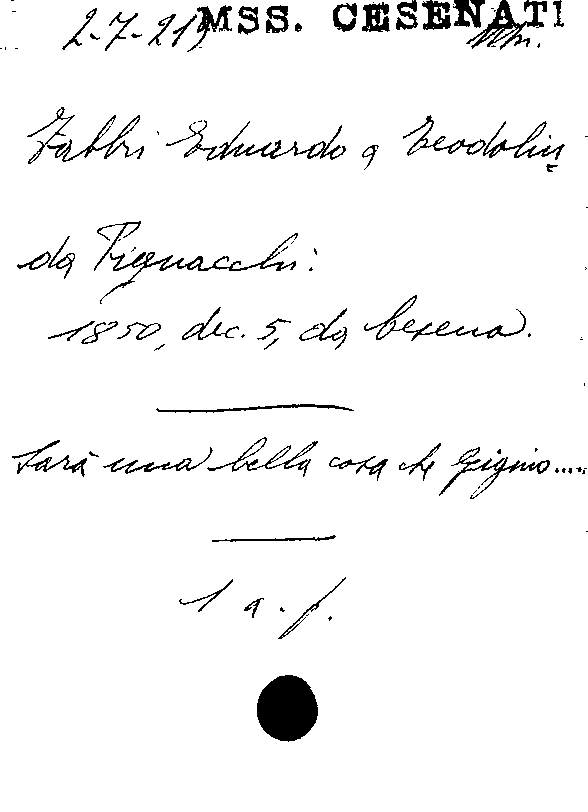 MSS. CESENATI
2-7-219
Fabbri Eduardo a Teodolin
da Pignacchi:
1850, dec. 5, da Cesena.
Sarà una bella cosa che Gigino....
1 a. f.